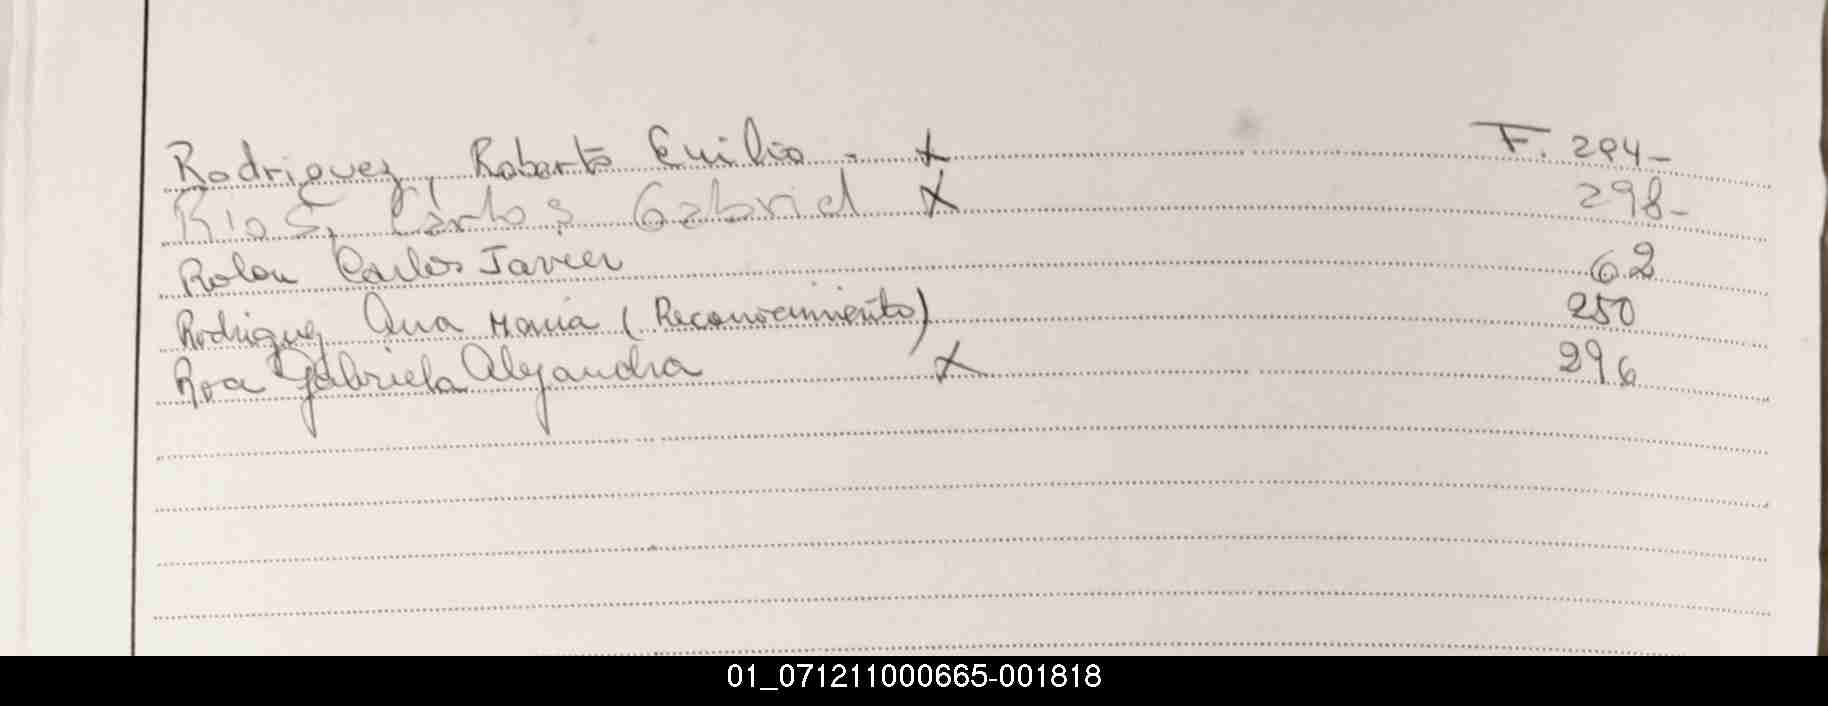 Rodriguez, Roberto Emilio - + F. 294-
Rios, Carlos Gabriel X 298-
Rolon Carlos Javier 62
Rodriguez Ana Maria (Reconocimiento) 250
Roa Gabriela Alejandra X 296
01_071211000665-001818